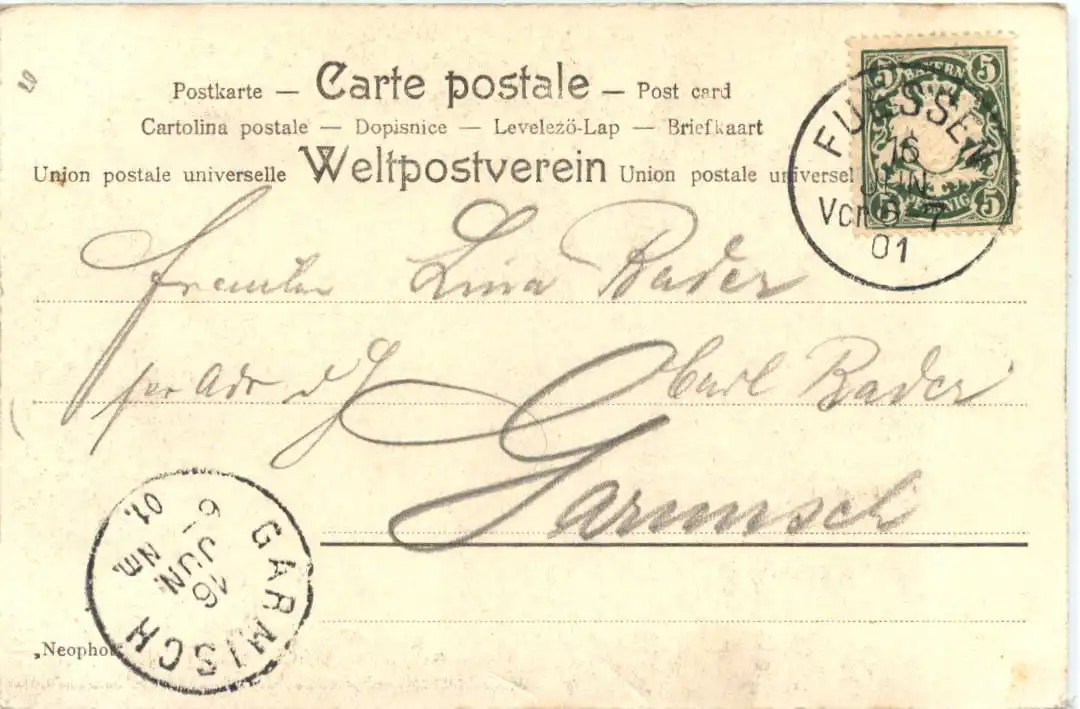 20
Postkarte — Carte postale — Post card
Cartolina postale — Dopisnice — Levelező-Lap — Briefkaart
Union postale universelle Weltpostverein Union postale universel
5 BAYERN 5
5 PFENNIG 5
FUESSEN
16
JUN
Vor 6-7
01
Fräulein Lina Bader
per Adr
Carl Bader
Garmisch
GARMISCH
16
JUN.
Nm.
01.
„Neophot